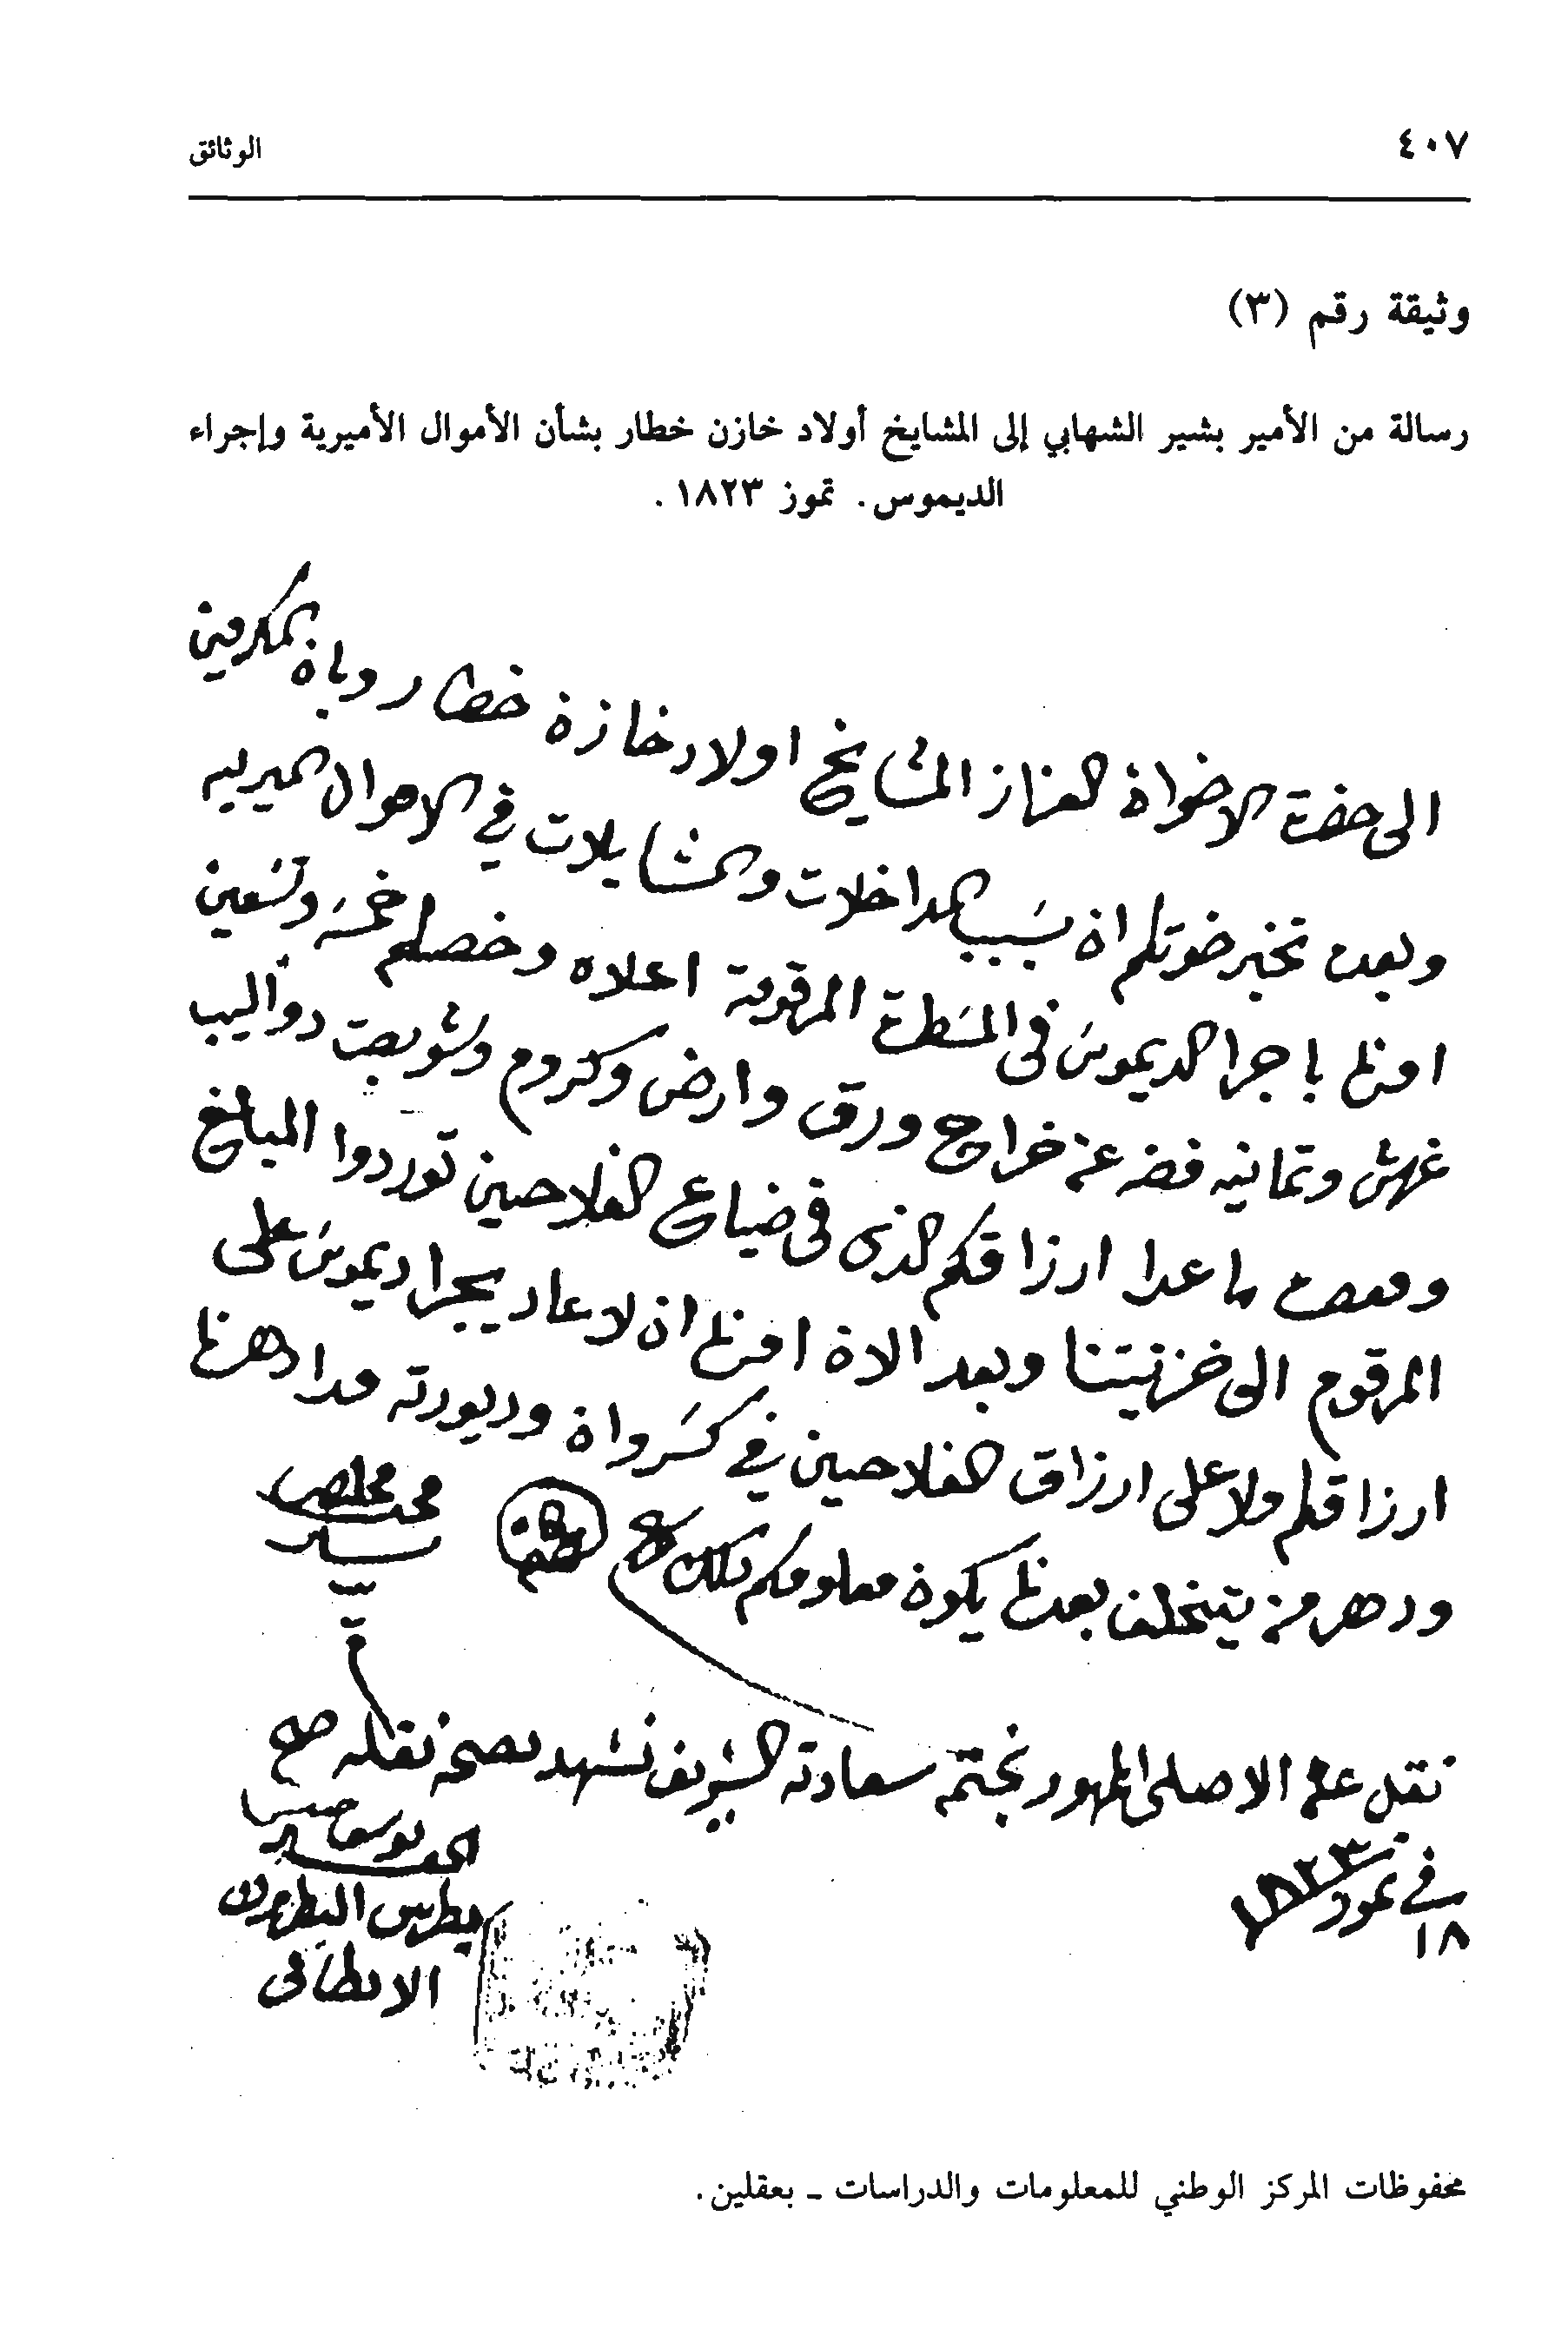 ٤٠٧
الوثائق
وثيقة رقم (٣)
رسالة من الأمير بشير الشهابي إلى المشايخ أولاد خازن خطار بشأن الأموال الأميرية وإجراء
الديموس. تموز ١٨٢٣.
الى حضرت الاخوان العزاز المشايخ اولاد خازن خطار المكرمين
وبعده نخبر خوتكم ان بسبب المداخلات والمشايلات في الاموال الميريه
امرنا باجرا الديموس في المسطرة المرقومة اعلاه وخصكم خمسة وتسعين
غرش وثمانيه فضه عن خراج ورق وارض وكروم دواليب
ما عدا ارزاقكم الذي في ضياع الفلاحين توردوا المبلغ
المرقوم الى خزنيتنا وبعد الان امرنا ان لا عاد يجرا ديموس على
ارزاقكم ولا على ارزاق الفلاحين في كسروان
من يتخلف بعدها يكون معلومكم ذلك
محب مخلص
بشير
نقل عن الاصلي الممهور بختم سعادته الشريف نشهد بصحة نقله صح
في ١٨ تموز ١٨٢٣
الحقير يوسف حبيس
بطرس البطريرك
الانطاكي
محفوظات المركز الوطني للمعلومات والدراسات ـ بعقلين.